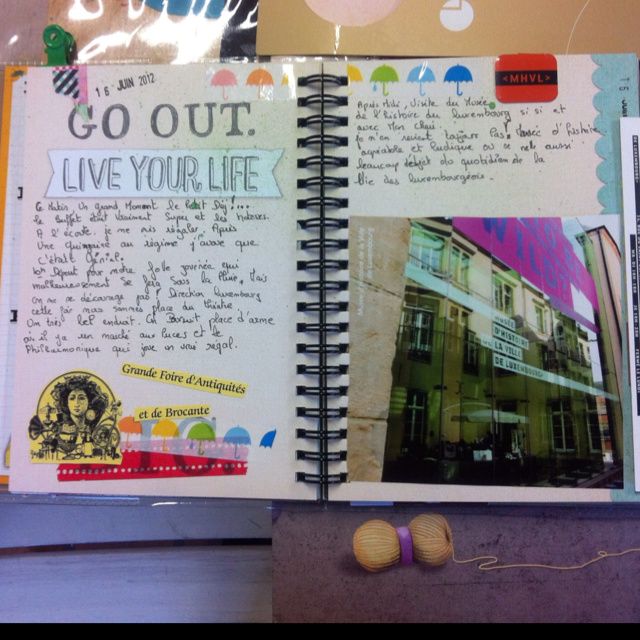 16 JUIN 2012
GO OUT.
LIVE YOUR LIFE
Ce matin, Un grand Moment le Petit Déj!...
le buffet était vraiment super et les hôtesses
A l'écoute. je me suis régalée Après
Une quinzaine au régime j'avoue que
c'était Génial.
Départ pour notre folle journée qui
malheureusement se fera sous la Pluie, Mais
On ne se décourage pas! Direction Luxembourg
celle fois nous sommes place du théâtre
Un très bel endroit. Ce place d'arme
où il y a un marché aux puces et le
Philharmonique qui joue un vrai régal.
Grande Foire d'Antiquités
et de Brocante
<MHVL>
Après Midi, Visite du Musée
de l'histoire du Luxembourg si si et
avec Mon Chéri!
je m'en suis toujours pas! Musée d'histoire
agréable et ludique où se mêle aussi
beaucoup d'objet du quotidien de la
Vie des luxembourgeois.
MUSÉE
D'HISTOIRE
DE LA VILLE
DE LUXEMBOURG